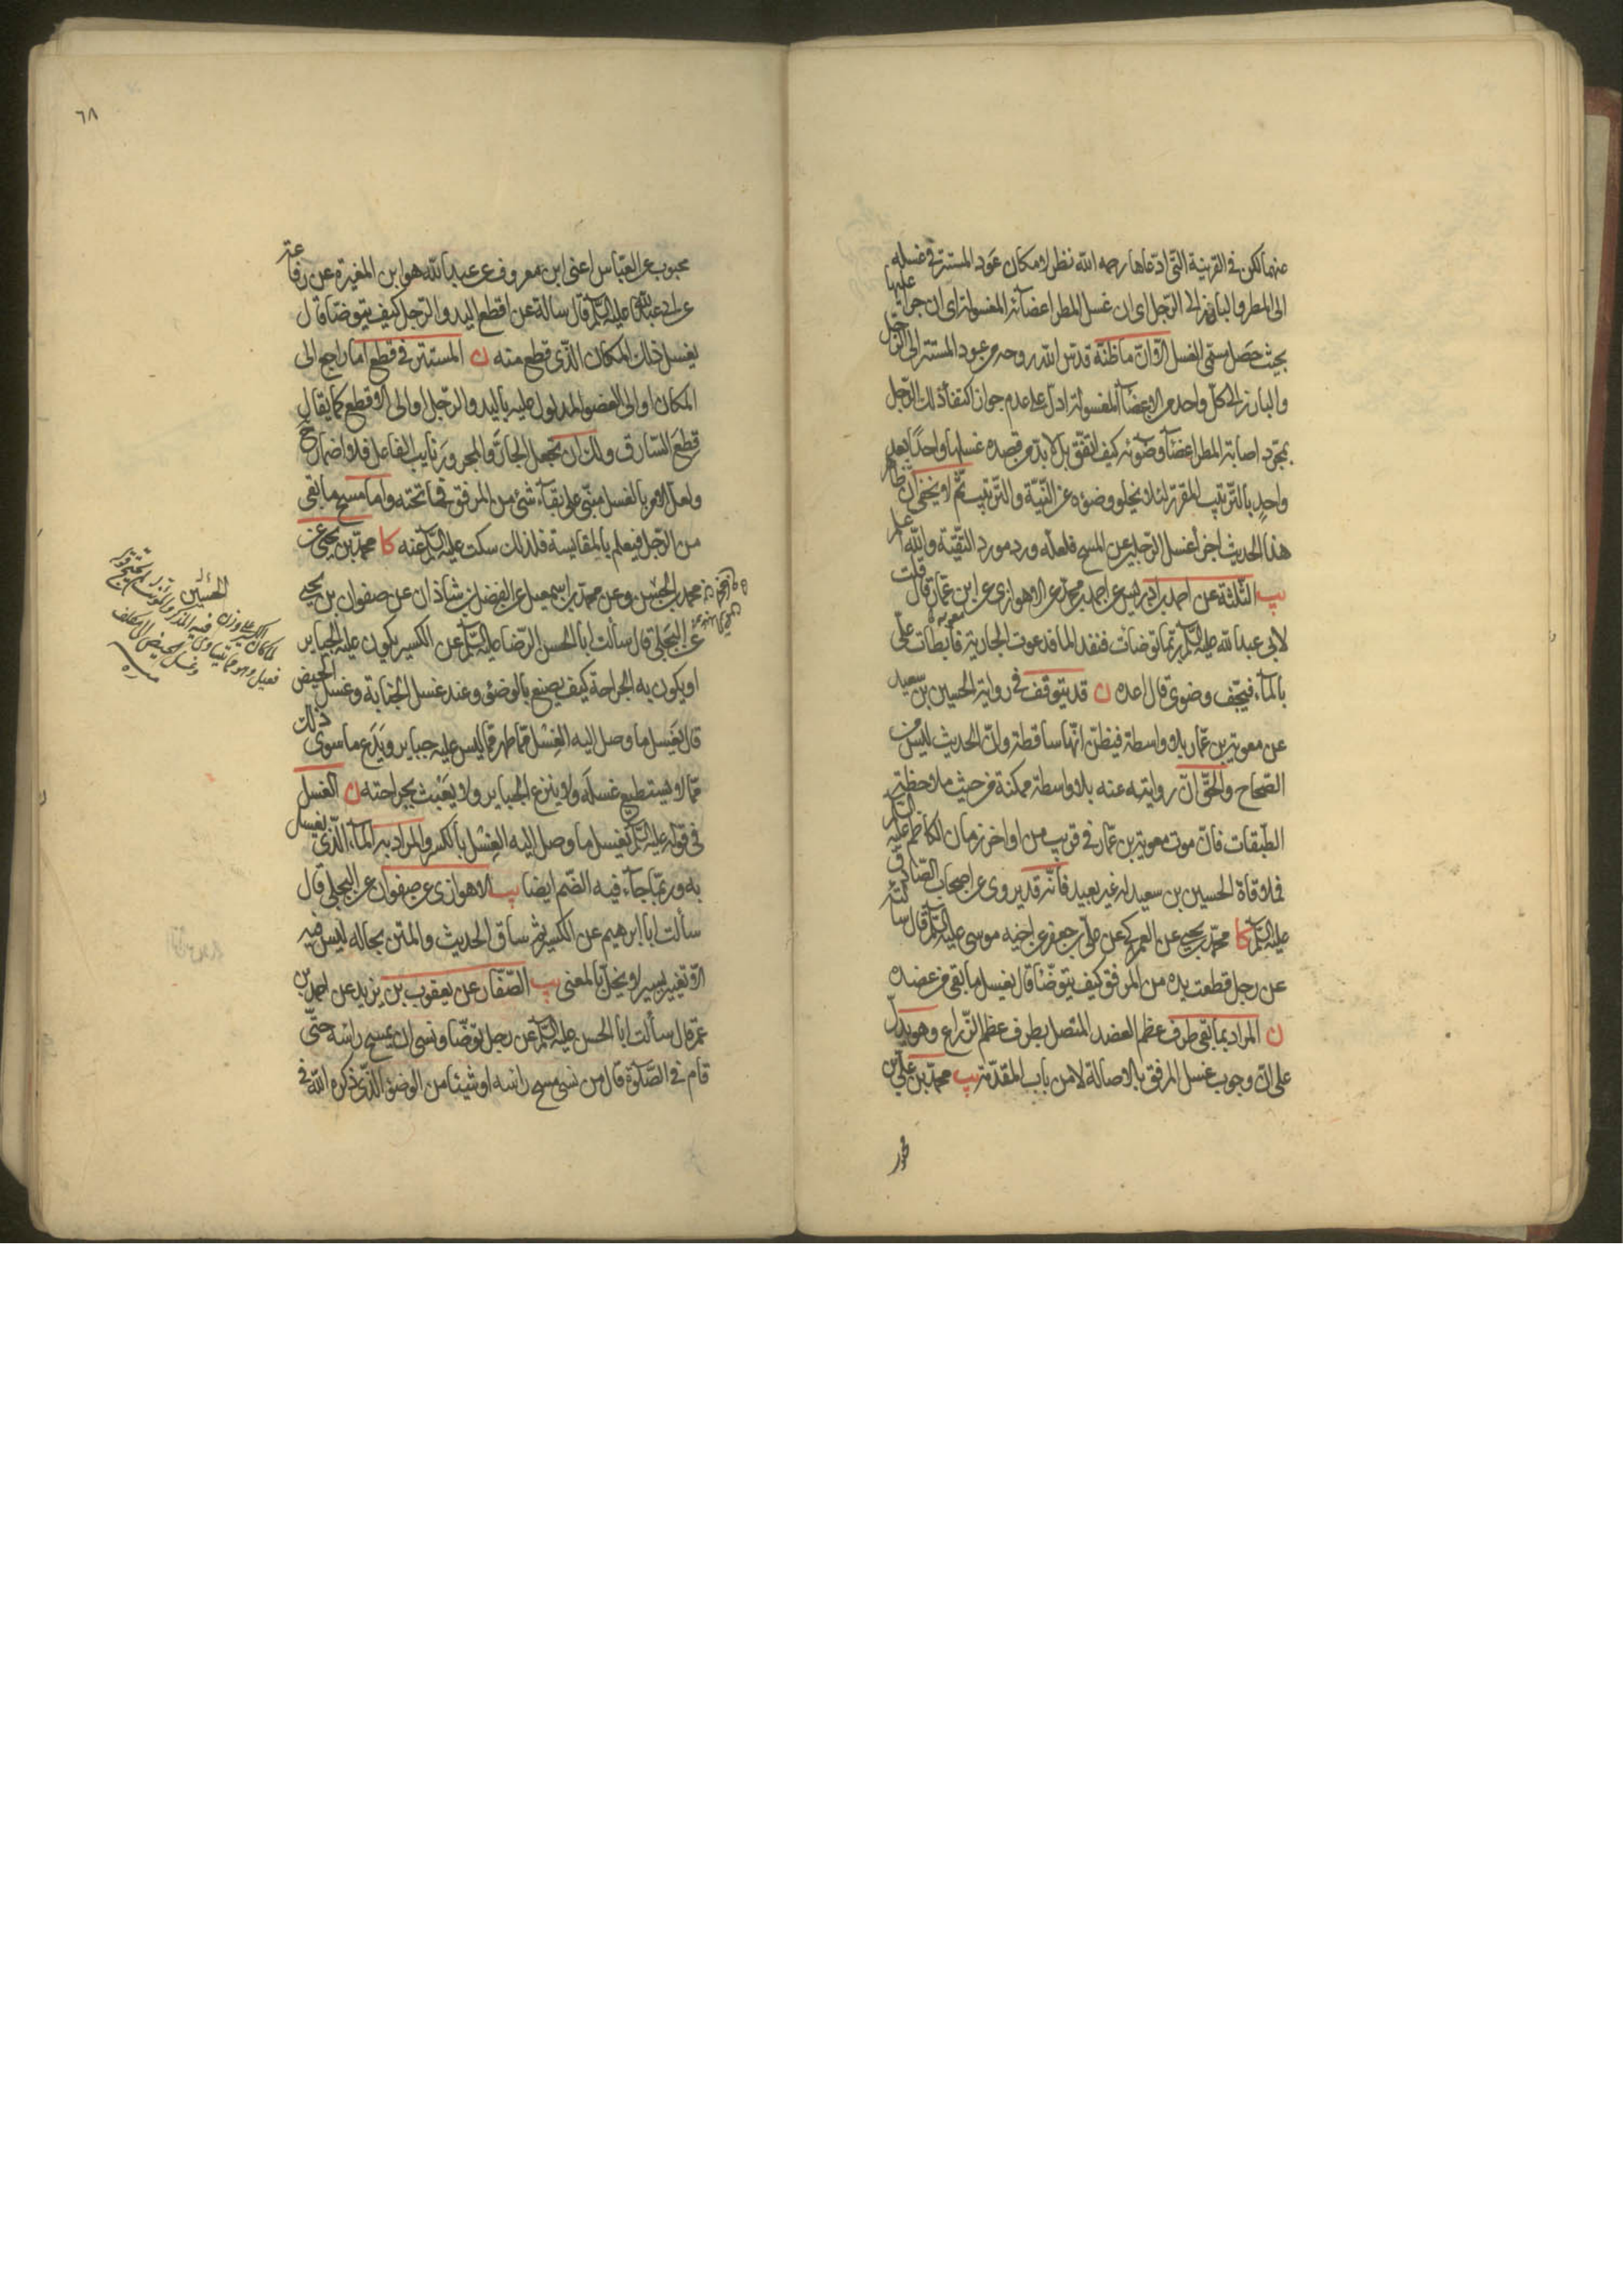 عنهما لكن في القرينة التي ادعاها رحمه الله نظر لامكان عود المستتر في غسله
الى المطر والبارز الى الرجل اي ان غسل المطر اعضائه المغسولة اي ان جرى عليها
بحيث حصل مسمى الغسل الا ان ما ظنه قدس الله روحه من عود المستتر الى الرجل
والبارز الى كل واحد من الاعضاء المغسولة ادل على عدم جواز اكتفاء ذلك الرجل
بمجرد اصابة المطر اعضاء وضوئه كيف اتفق بل لا بد من قصده غسلها واحدا بعد
واحد بالترتيب المقرر لئلا يخلو وضوءه عن النية والترتيب ثم لا يخفى ان ظاهر
هذا الحديث اجزاء غسل الرجلين عن المسح فلعله ورد مورد التقية والله اعلم
يب الثلثة عن احمد بن ادريس عن احمد بن محمد عن الاهوازي عن ابن عمار قال قلت
معوية
لابي عبدالله عليه السلم ربما توضات فنفد الماء فدعوت الجارية فابطات علي
بالماء فيجف وضوئي قال اعده ن قد يتوقف في رواية الحسين بن سعيد
عن معوية بن عمار بلا واسطة فيظن انها ساقطة وان الحديث ليس من
الصحاح والحق ان روايته عنه بلا واسطة ممكنة من حيث ملاحظة
الطبقات فان موت معوية بن عمار في قريب من اواخر زمان الكاظم عليه السلم
فملاقاة الحسين بن سعيد له غير بعيد فانه قد يروي عن اصحاب الصادق
عليه السلم كا محمد بن يحيى عن العمركي عن علي بن جعفر عن اخيه موسى عليه السلم قال سألته
عن رجل قطعت يده من المرفق كيف يتوضا قال يغسل ما بقي من عضده
ن المراد بما بقي طرف عظم العضد المتصل بطرف عظم الذراع وهو يدل
على ان وجوب غسل المرفق بالاصالة لا من باب المقدمة يب محمد بن علي بن
محبوب عن العباس اعني ابن معروف عن عبدالله هو ابن المغيرة عن رفاعة
عن ابي عبدالله عليه السلم قال سالته عن اقطع اليد والرجل كيف يتوضا قال
يغسل ذلك المكان الذي قطع منه ن المستتر في قطع اما راجع الى
المكان او الى العضو المدلول عليه باليد والرجل او الى الاقطع كما يقال
قطع السارق ولك ان تجعل الجار والمجرور نايب الفاعل فلا اضمار ح
ولعل الامر بالغسل مبني على بقاء شئ من المرفق فما تحته واما مسح ما بقي
من الرجل فيعلم بالمقايسة فلذلك سكت عليه السلم عنه كا محمد بن يحيى عن
محمد بن الحسين وعن محمد بن اسمعيل عن الفضل بن شاذان عن صفوان بن يحيى
عن البجلي قال سألت ابا الحسن الرضا عليه السلم عن الكسير يكون عليه الجباير
او يكون به الجراحة كيف يصنع بالوضوء وعند غسل الجنابة وغسل الحيض
قال يغسل ما وصل اليه الغسل مما ظهر مما ليس عليه جباير ويدع ما سوى ذلك
مما لا يستطيع غسله ولا ينزع الجباير ولا يعبث بجراحته ن الغسل
في قوله عليه السلم يغسل ما وصل اليه الغسل بالكسر والمراد به الماء الذي يغسل
به وربما جاء فيه الضم ايضا يب الاهوازي عن صفوان عن البجلي قال
سألت ابا ابرهيم عن الكسير ثم ساق الحديث والمتن بحاله ليس فيه
الا تغيير يسير لا يخل بالمعنى يب الصفار عن يعقوب بن يزيد عن احمد بن
عمر قال سألت ابا الحسن عليه السلم عن رجل توضا ونسي ان يمسح راسه حتى
قام في الصلوة قال من نسي مسح راسه او شيئا من الوضوء الذي ذكره الله في
٦٨
لما كان الكسير على وزن
فعيل وهو مما يتساوى فيه المذكر والمؤنث
وغسل الحيض